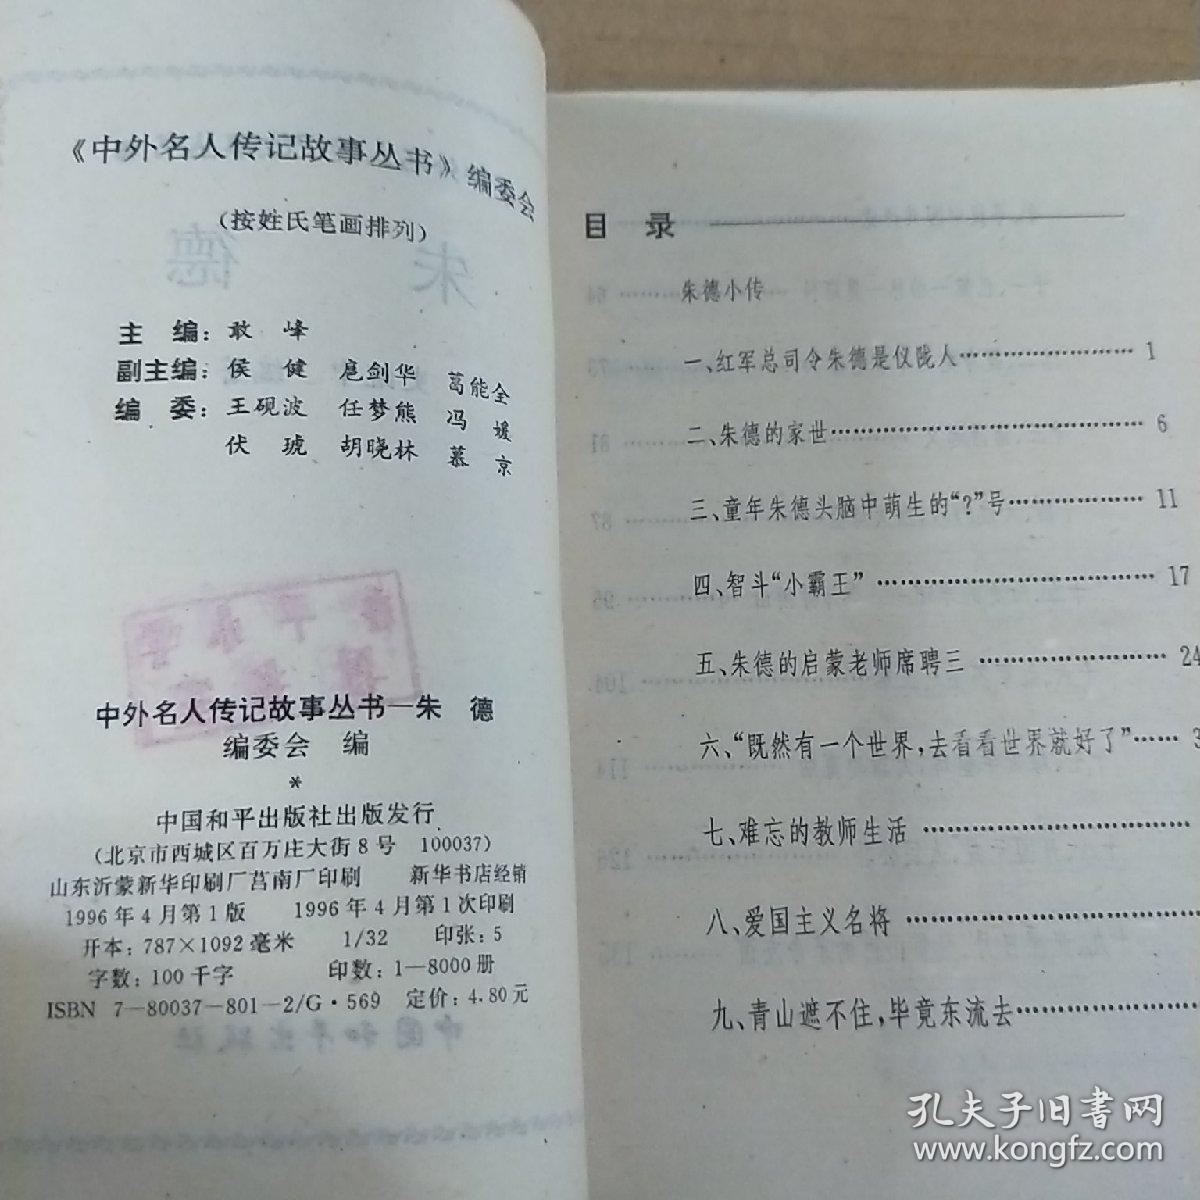 《中外名人传记故事丛书》编委会
(按姓氏笔画排列)
主 编: 敢 峰
副主编: 侯 健 扈剑华 葛能全
编 委: 王砚波 任梦熊 冯 媛
伏 琥 胡晓林 慕 京
中外名人传记故事丛书—朱 德
编委会 编
*
中国和平出版社出版发行
(北京市西城区百万庄大街8号 100037)
山东沂蒙新华印刷厂莒南厂印刷 新华书店经销
1996年4月第1版 1996年4月第1次印刷
开本: 787×1092毫米 1/32 印张: 5
字数: 100千字 印数: 1—8000册
ISBN 7—80037—801—2/G·569 定价: 4.80元
目 录
朱德小传
一、红军总司令朱德是仪陇人………………… 1
二、朱德的家世……………………………… 6
三、童年朱德头脑中萌生的“?”号…………… 11
四、智斗“小霸王” ………………………… 17
五、朱德的启蒙老师席聘三 ………………… 24
六、“既然有一个世界,去看看世界就好了”…… 3
七、难忘的教师生活 …………………………
八、爱国主义名将 ……………………………
九、青山遮不住,毕竟东流去…………………
孔夫子旧书网
www.kongfz.com